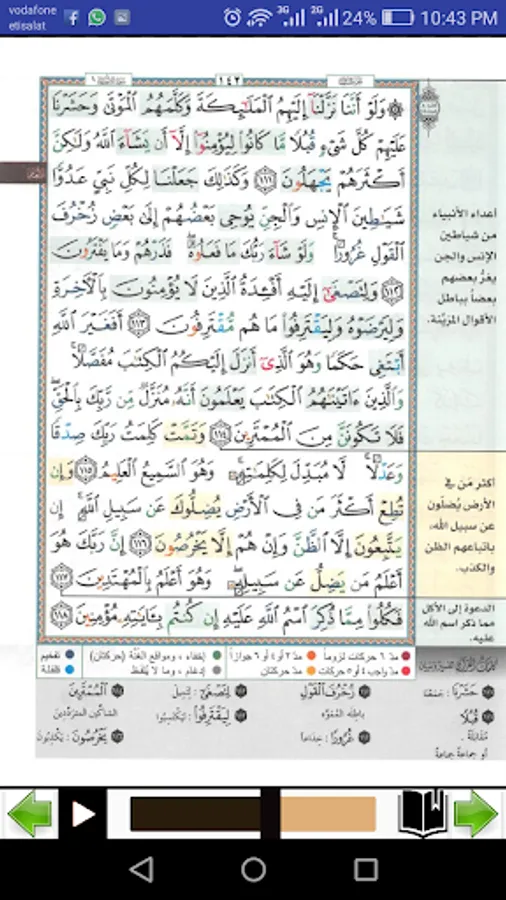 vodafone
etisalat
3G
2G
24%
10:43 PM
١٤٢
۞ وَلَوْ أَنَّنَا نَزَّلْنَا إِلَيْهِمُ الْمَلَٰٓئِكَةَ وَكَلَّمَهُمُ الْمَوْتَىٰ وَحَشَرْنَا
عَلَيْهِمْ كُلَّ شَيْءٍ قُبُلًا مَّا كَانُوا لِيُؤْمِنُوٓا إِلَّآ أَن يَشَآءَ اللَّهُ وَلَٰكِنَّ
أَكْثَرَهُمْ يَجْهَلُونَ ﴿١١١﴾ وَكَذَٰلِكَ جَعَلْنَا لِكُلِّ نَبِيٍّ عَدُوًّا
شَيَٰطِينَ الْإِنسِ وَالْجِنِّ يُوحِي بَعْضُهُمْ إِلَىٰ بَعْضٍ زُخْرُفَ
الْقَوْلِ غُرُورًا ۚ وَلَوْ شَآءَ رَبُّكَ مَا فَعَلُوهُ ۖ فَذَرْهُمْ وَمَا يَفْتَرُونَ
﴿١١٢﴾ وَلِتَصْغَىٰٓ إِلَيْهِ أَفْـِٔدَةُ الَّذِينَ لَا يُؤْمِنُونَ بِالْأَخِرَةِ
وَلِيَرْضَوْهُ وَلِيَقْتَرِفُوا مَا هُم مُّقْتَرِفُونَ ﴿١١٣﴾ أَفَغَيْرَ اللَّهِ
أَبْتَغِي حَكَمًا وَهُوَ الَّذِيٓ أَنزَلَ إِلَيْكُمُ الْكِتَٰبَ مُفَصَّلًا ۚ
وَالَّذِينَ ءَاتَيْنَٰهُمُ الْكِتَٰبَ يَعْلَمُونَ أَنَّهُۥ مُنَزَّلٌ مِّن رَّبِّكَ بِالْحَقِّ ۖ
فَلَا تَكُونَنَّ مِنَ الْمُمْتَرِينَ ﴿١١٤﴾ وَتَمَّتْ كَلِمَتُ رَبِّكَ صِدْقًا
وَعَدْلًا ۚ لَّا مُبَدِّلَ لِكَلِمَٰتِهِۦ ۚ وَهُوَ السَّمِيعُ الْعَلِيمُ ﴿١١٥﴾ وَإِن
تُطِعْ أَكْثَرَ مَن فِي الْأَرْضِ يُضِلُّوكَ عَن سَبِيلِ اللَّهِ ۚ إِن
يَتَّبِعُونَ إِلَّا الظَّنَّ وَإِنْ هُمْ إِلَّا يَخْرُصُونَ ﴿١١٦﴾ إِنَّ رَبَّكَ هُوَ
أَعْلَمُ مَن يَضِلُّ عَن سَبِيلِهِۦ ۖ وَهُوَ أَعْلَمُ بِالْمُهْتَدِينَ ﴿١١٧﴾
فَكُلُوا مِمَّا ذُكِرَ اسْمُ اللَّهِ عَلَيْهِ إِن كُنتُم بِـَٔايَٰتِهِۦ مُؤْمِنِينَ ﴿١١٨﴾
أعداء الأنبياء
من شياطين
الإنس والجن
يغرُّ بعضهم
بعضاً بباطل
الأقوال المزيّنة.
أكثر مَن في
الأرض يُضلّون
عن سبيل الله،
باتباعهم الظن
والكذب.
الدعوة إلى الأكل
مما ذكر اسم الله
عليه.
مدّ ٦ حركات لزوماً
مدّ ٢ أو ٤ أو ٦ جوازاً
إخفاء، ومواقع الغُنَّة (حركتان)
تفخيم
مدّ واجب ٤ أو ٥ حركات
مدّ حركتان
إدغام، وما لا يُلفظ
قلقلة
حَشَرْنَا : جَمَعْنَا
زُخْرُفَ الْقَوْلِ
لِتَصْغَىٰ : لِتَمِيلَ
الْمُمْتَرِينَ
قُبُلًا
بَاطِلَهُ المُمَوَّه
لِيَقْتَرِفُوا : لِيَكْتَسِبُوا
الشاكّين المتردّدين
مُقَابَلَةً .
غُرُورًا : خِدَاعاً
يَخْرُصُونَ : يَكْذِبُونَ
أو جماعةً جماعةً